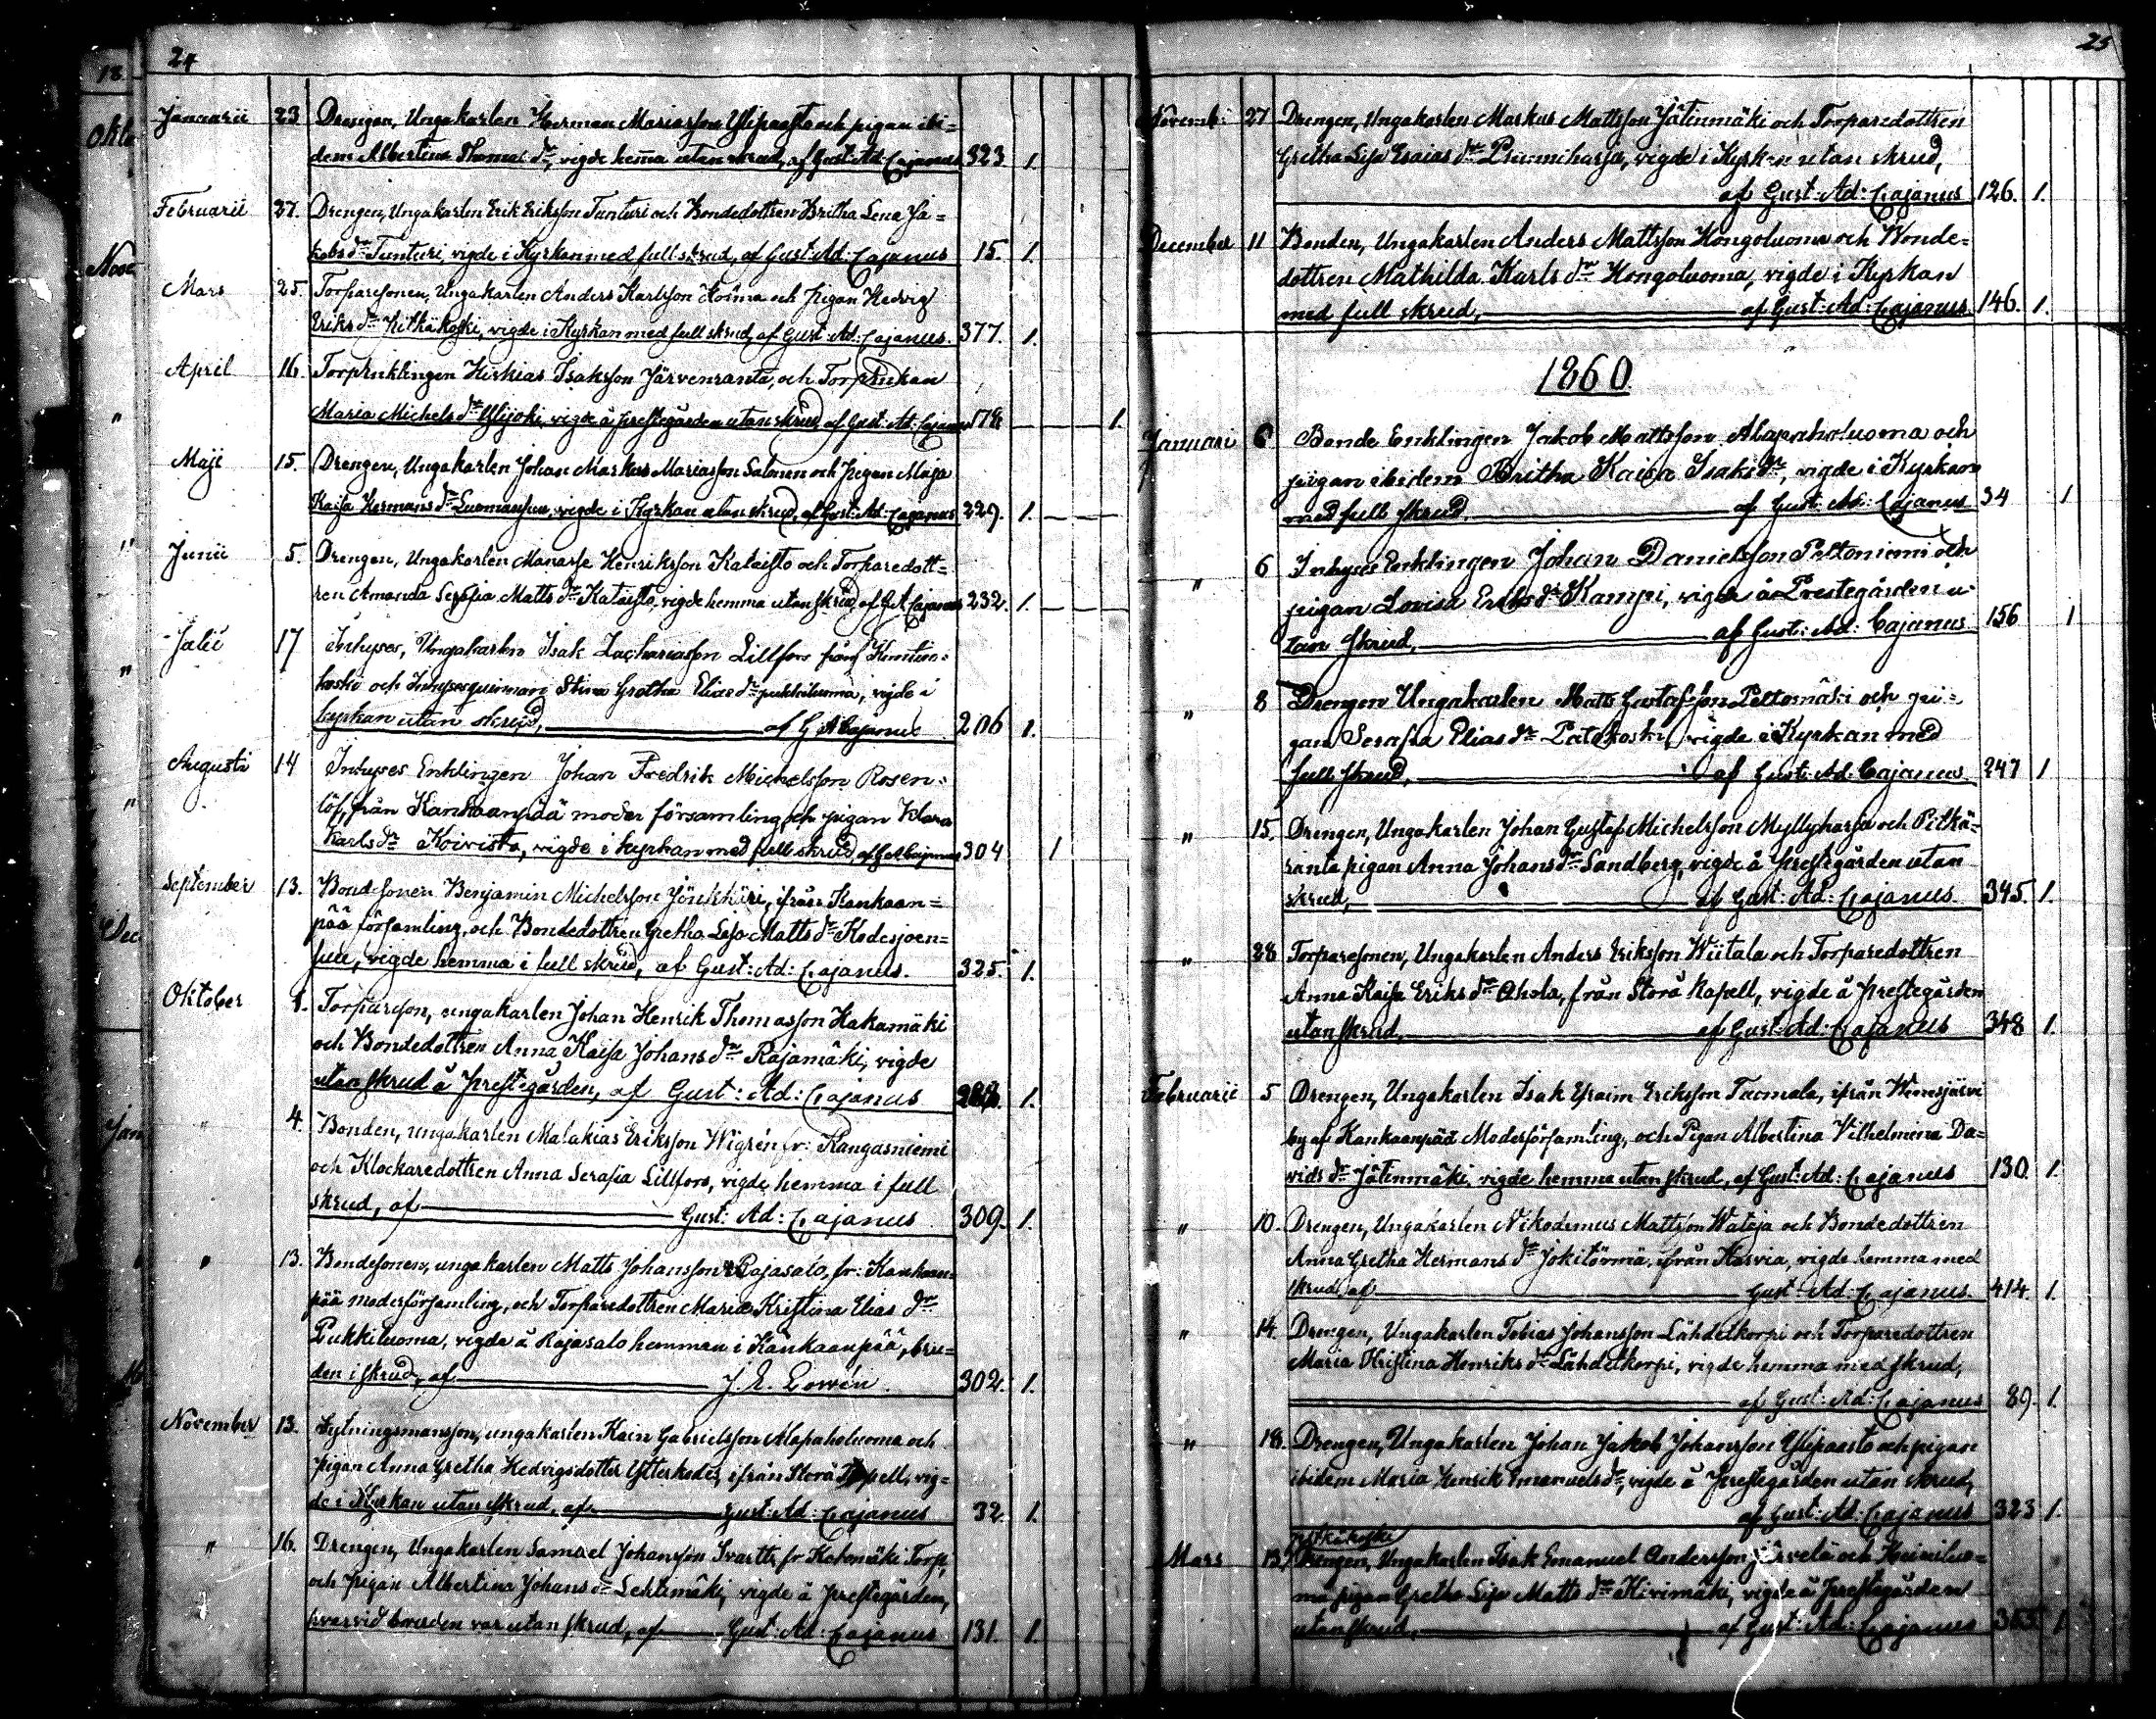 24
Januarii 23 Drengen, Ungakarlen Herman Mariasson Ylipaasto och pigan ibi=
dem Albertina Thomas dr, vigde hema utan skrud, af Gust: Ad: Cajanus 323 1.
Februarii 27. Drengen, Ungakarlen Erik Eriksson Tunturi och Bondedottren Britha Lena Ja=
kobs dr Tunturi, vigde i Kyrkan med full skrud, af Gust: Ad: Cajanus 15. 1.
Mars 25. Torparesonen, Ungakarlen Anders Karlsson och pigan Hedvig
Eriks dr Kitkäkoski, vigde i Kyrkan med full skrud, af Gust: Ad: Cajanus. 377. 1.
April 16. Torpenklingen Hiskias Isaksson Järvenranta, och Torpenkan
Maria Michels dr Ylijoki, vigde å prestegården utan skrud af Gust: Ad: Cajanus 178 1.
Maji 15. Drengen, Ungakarlen Johan Markus Mariasson Salonen och pigan Maja
Kaisa Hermans dr, vigde i Kyrkan utan skrud, af Gust: Ad: Cajanus 229. 1.
Junii 5. Drengen, Ungakarlen Manasse Henriksson Kataisto och Torparedott=
ren Amanda Serafia Matts dr Kataisto, vigde hemma utan skrud, af G A Cajanus 232. 1.
Julii 17 Inhyses, Ungakarlen Isak Zachariasson Lillfors från
koski och Inhysesqvinnan Stina Gretha Elias dr pukkiluoma, vigde i
kyrkan utan skrud, af G A Cajanus 206 1.
Augusti 14 Inhyses Enklingen Johan Fredrik Michelsson Rosen=
löf, från Kankaanpää moder församling och pigan Klara
Karls dr Koivisto, vigde i kyrkan med full skrud af G A Cajanus 304 1
September 13. Bondesonen Benjamin Michelsson, ifrån Kankaan=
pää församling, och Bondedottren Gretha Lisa Matts dr Kodesjoen=
suu, vigde hemma i full skrud, af Gust: Ad: Cajanus. 325. 1.
Oktober 1. Torpareson, ungakarlen Johan Henrik Thomasson Kakamäki
och Bondedottren Anna Kaisa Johans dr Rajamäki, vigde
utan skrud å prestegården, af Gust: Ad: Cajanus 1.
" 4. Bonden, ungakarlen Malakias Eriksson Wigrén fr: Kangasniemi
och Klockaredottren Anna Serafia Lillfors, vigde hemma i full
skrud, af Gust: Ad: Cajanus 309. 1.
" 13. Bondesonen, ungakarlen Matts Johansson Rajasalo, fr: Kankaan=
pää moderförsamling, och Torparedottren Maria Kristina Elias dr
Pukkiluoma, vigde å Rajasalo hemman i Kankaanpää, bru=
den i skrud, af J. E. Lowén 302. 1.
November 13. Sytningsmansson, ungakarlen Kain Gabrielsson Alapaholuoma och
pigan Anna Gretha Hedvigsdotter Ytterkodes, ifrån Storå Kapell, vig=
de i Kyrkan utan skrud, af Gust: Ad: Cajanus 32. 1.
" 16. Drengen, Ungakarlen Samuel Johansson Svartti, fr Katomäki Torp,
och pigan Albertina Johans dr Lehtimäki, vigde å prestegården,
hvarvid bruden var utan skrud, af Gust: Ad: Cajanus 131. 1.
25
Novemb: 27 Drengen, Ungakarlen Markus Mattsson Jätinmäki och Torparedottren
Gretha Lisa Esaias dr, vigde i Kyrkan utan skrud,
af Gust: Ad: Cajanus 126. 1.
December 11 Bonden, Ungakarlen Anders Mattsson Kongoluoma och Bonde=
dottren Mathilda Karls dr Kongoluoma, vigde i Kyrkan
med full skrud, af Gust: Ad: Cajanus. 146. 1.
1860
Januari 6 Bonde Enklingen Jakob Mattsson Alapaholuoma och
pigan ibidem Britha Kaisa Isaks dr, vigde i Kyrkan
med full skrud. af Gust: Ad: Cajanus 34 1
" 6 Inhyses Enklingen Johan Danielsson Peltoniemi och
pigan Lovisa Eriks dr Kampi, vigde å Prestegården u=
tan skrud, af Gust: Ad: Cajanus 156 1
" 8 Drengen Ungakarlen Matts Gustafsson Peltomäki och pi=
gan Serafia Elias dr Patokoski, vigde i Kyrkan med
full skrud, af Gust: Ad: Cajanus 247 1
" 15. Drengen, Ungakarlen Johan Gustaf Michelsson Myllyharja och Pitkä=
ranta pigan Anna Johans dr Sandberg, vigde å prestegården utan
skrud, af Gust: Ad: Cajanus. 345. 1.
" 28 Torparesonen, Ungakarlen Anders Eriksson Wiitala och Torparedottren
Anna Kaisa Eriks dr Ahola, från Storå Kapell, vigde å prestegården
utan skrud, af Gust: Ad: Cajanus 348 1.
Februarii 5 Drengen, Ungakarlen Isak Efraim Eriksson Tuomala, ifrån Wenesjärvi
by af Kankaanpää Moderförsamling, och Pigan Albertina Vilhelmina Da=
vids dr Jätinmäki, vigde hemma utan skrud, af Gust: Ad: Cajanus 130. 1.
" 10. Drengen, Ungakarlen Nikodemus Mattsson Wataja och Bondedottren
Anna Gretha Hermans dr Jokitörmä, ifrån Karvia, vigde hemma med
skrud, af Gust: Ad: Cajanus. 414. 1.
" 14. Drengen, Ungakarlen Tobias Johansson Lähdetkorpi och Torparedottren
Maria Kristina Henriks dr Lähdetkorpi, vigde hemma med skrud,
af Gust: Ad: Cajanus 89. 1.
" 18. Drengen, Ungakarlen Johan Jakob Johansson Ylipaasto och pigan
ibidem Maria Henrik Emanuels dr, vigde å Prestegården utan skrud,
af Gust: Ad: Cajanus 323 1.
Mars 13. Drengen, Ungakarlen Isak Emanuel Andersson Järvelä och
ma pigan Gretha Lisa Matts dr Kivimäki, vigde å prestegården
utan skrud, af Gust: Ad: Cajanus 1